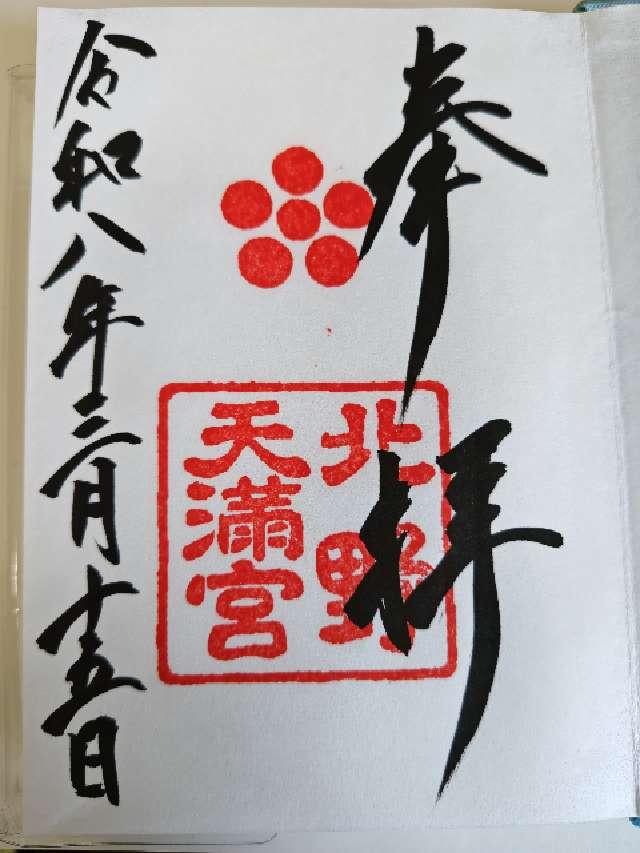 奉拝
北野
天満宮
令和八年三月十五日